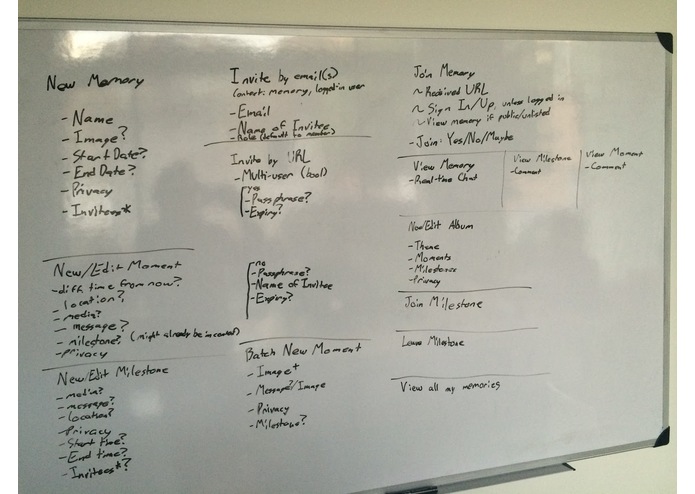 New Memory
- Name
- Image?
- Start Date?
- End Date?
- Privacy
- Invitees*
New/Edit Moment
- diff time from now?
- location?
- media?
- message?
- milestone? (might already be in context)
- privacy
New/Edit Milestone
- media?
- message?
- location?
- Privacy
- Start time?
- End time?
- Invitees*?
Invite by email(s)
Context: memory, logged-in user
- Email
- Name of Invitee
- Role (default to member)
Invite by URL
- Multi-user (bool)
yes
- Passphrase?
- Expiry?
no
- Passphrase?
- Name of Invitee
- Expiry?
Batch New Moment
- Image+
- Message?/Image
- Privacy
- Milestone?
Join Memory
~ Received URL
~ Sign In/Up, unless logged in
~ View memory if public/unlisted
- Join: Yes/No/Maybe
View Memory
- Real-time Chat
View Milestone
- Comment
View Moment
- Comment
New/Edit Album
- Theme
- Moments
- Milestones
- Privacy
Join Milestone
Leave Milestone
View all my memories